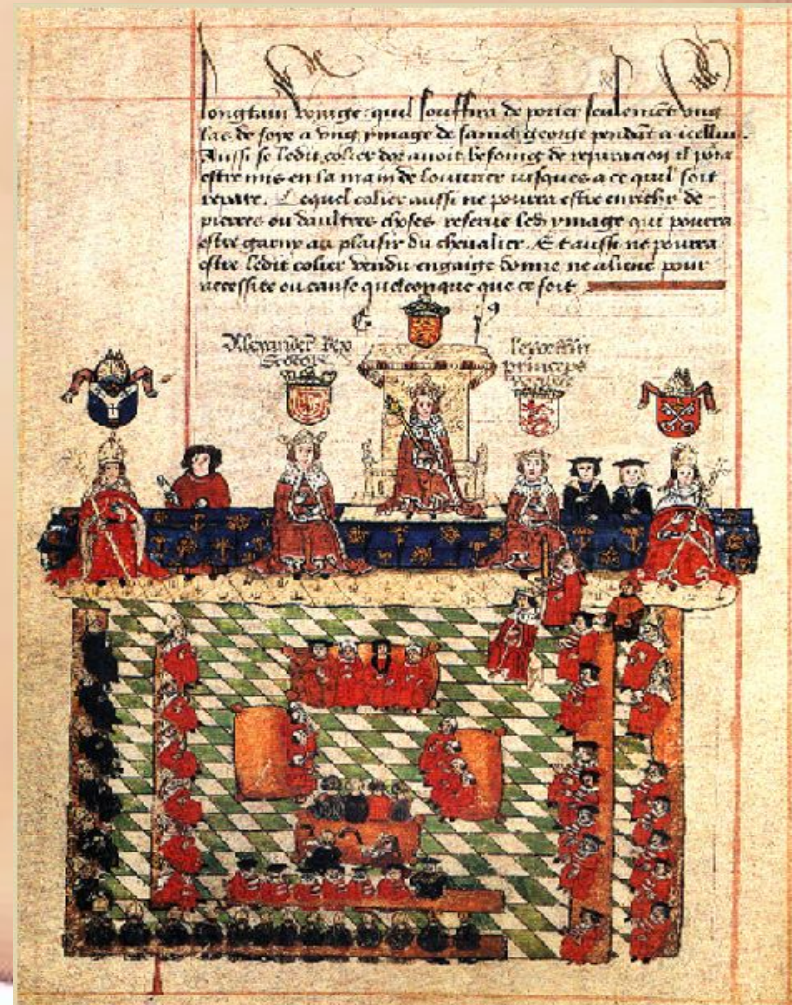 longtain voyage: quil souffira de porter seulement ung
las de soye a ung ymage de sainct george pendāt a icelluy.
Aussi se ledit colier dor avoit besoing de reparacion il pora
estre mis en la main de louvrier iusques a ce quil soit
repare. Lequel colier aussi ne pourra estre enrichy de -
pierres ou daultres choses reserve led ymage qui pourra
estre garny au plaisir du chevalier. Et aussi ne pourra
estre ledit colier vendu engaige donne ne aliene pour
necessite ou cause quelconque que ce soit
Alexander Rex
Scotie
princeps